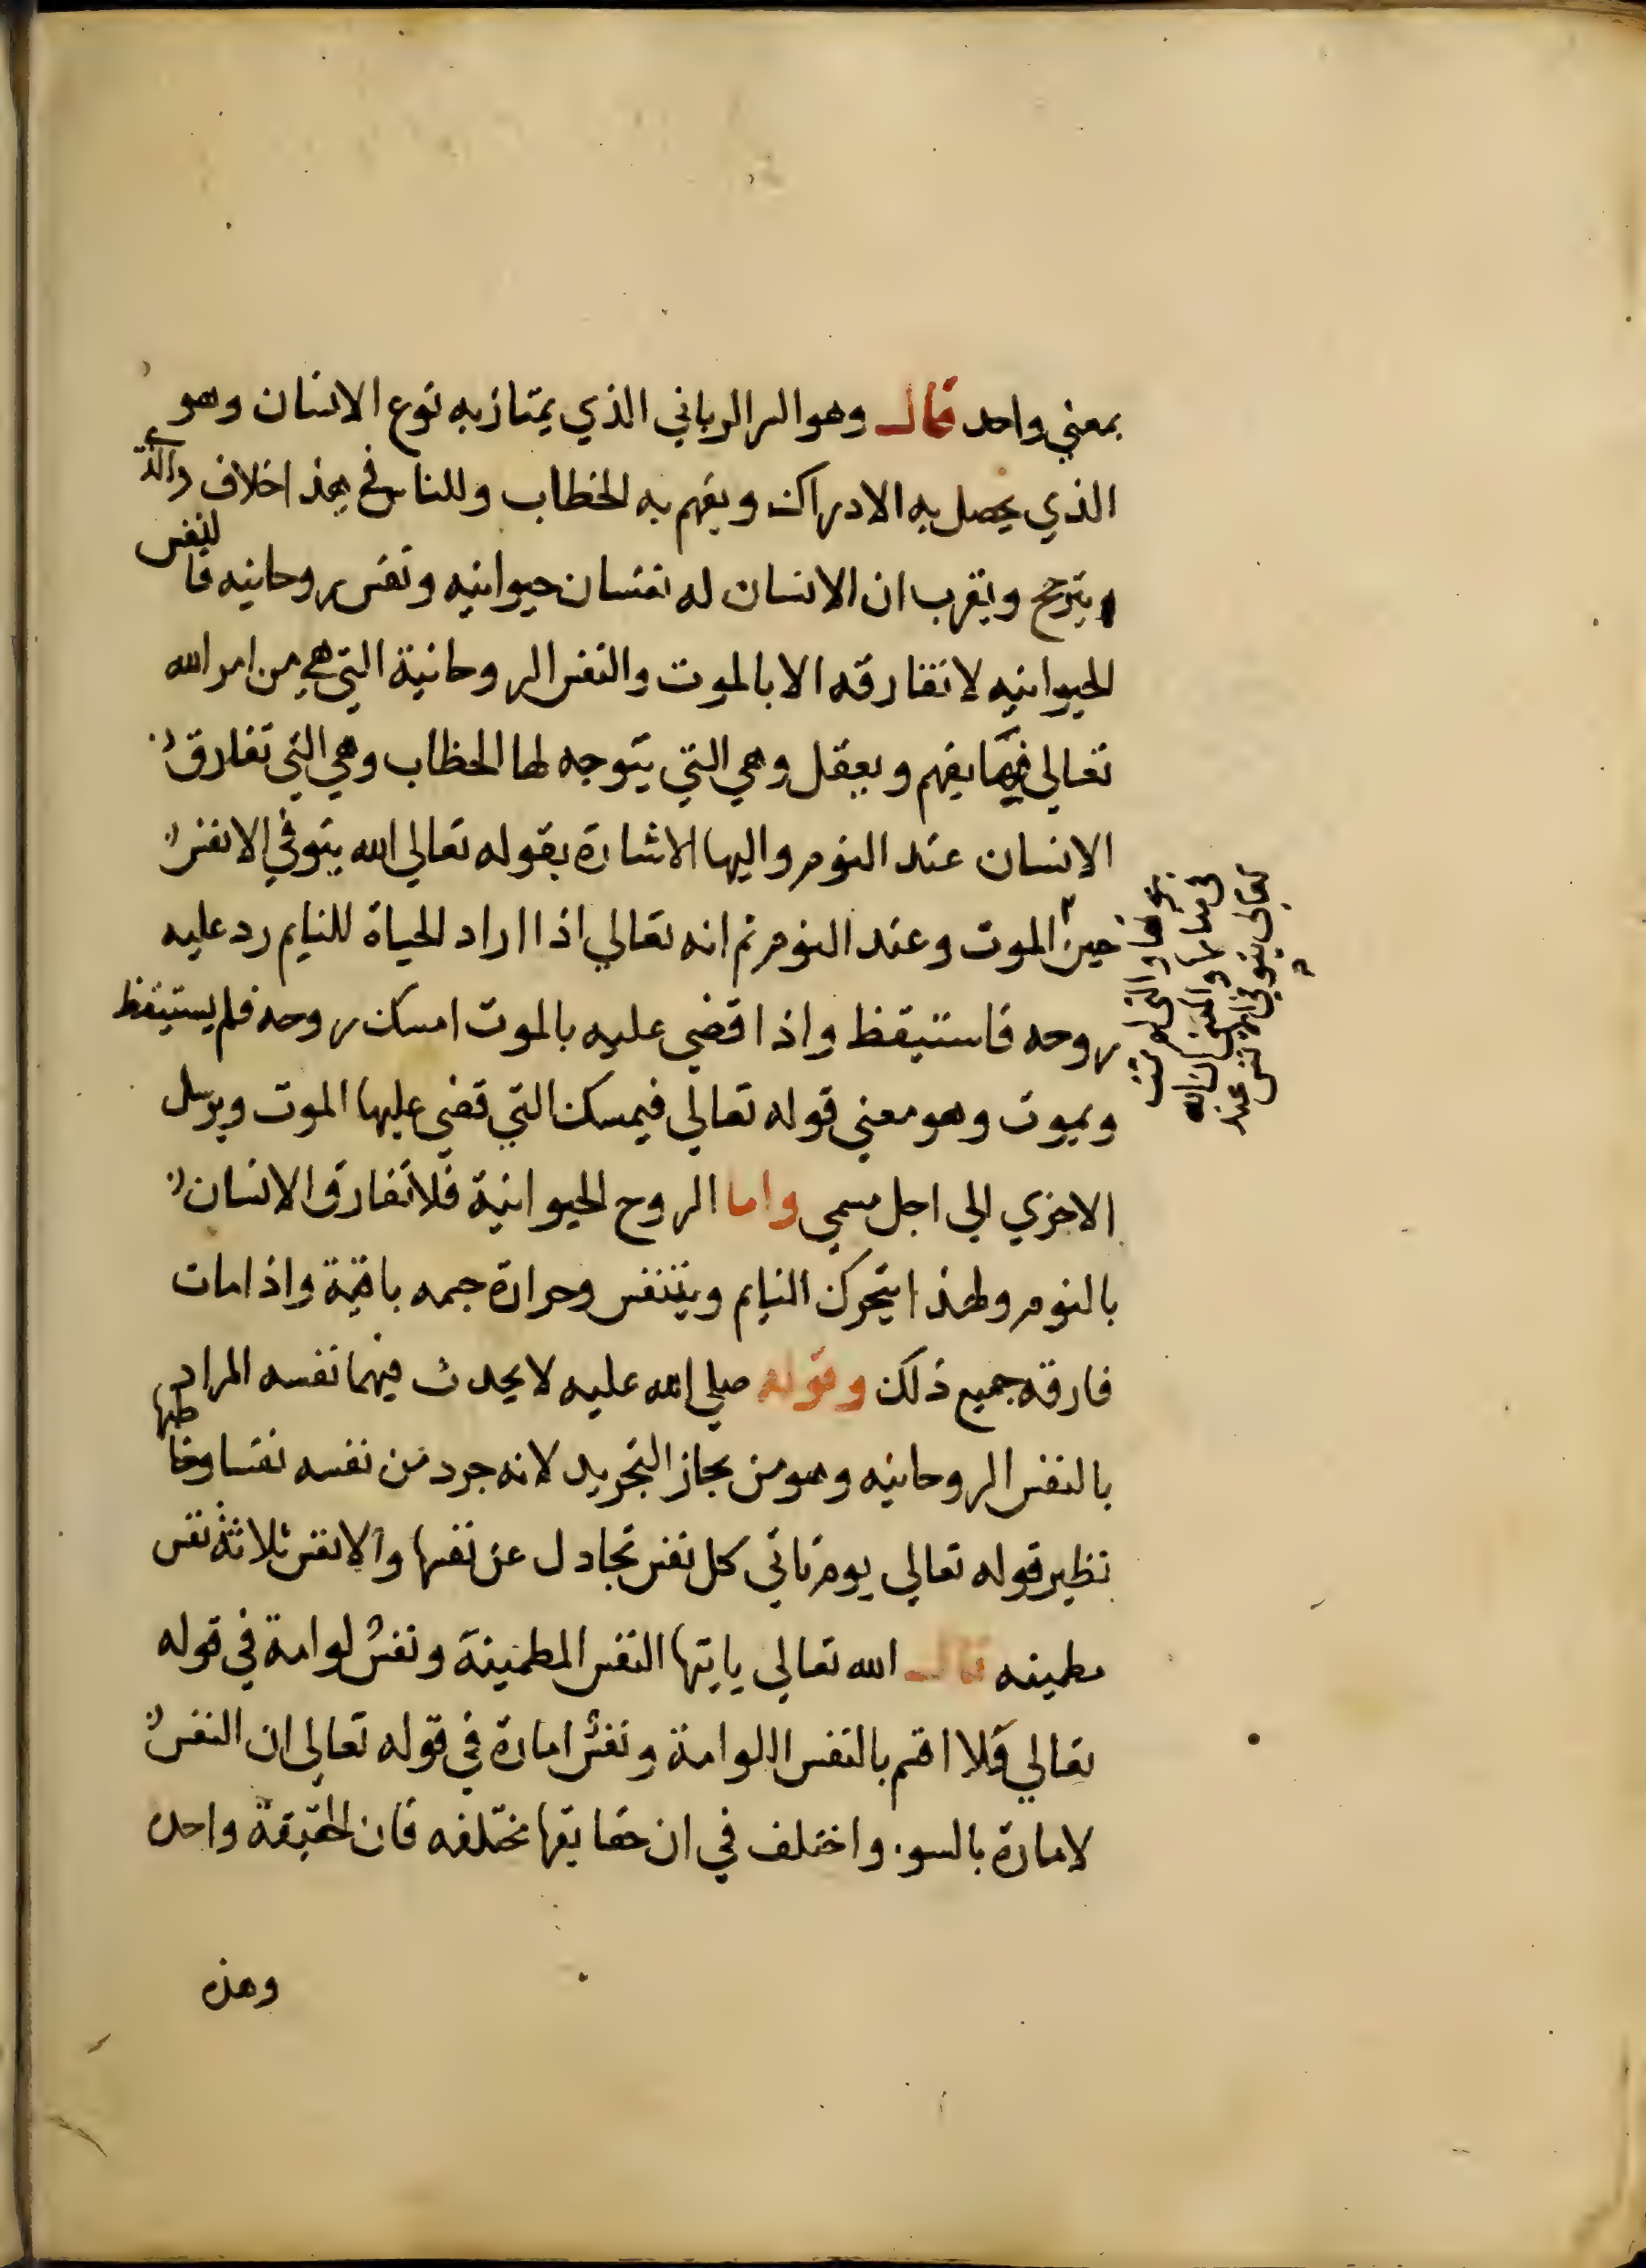 بمعني واحد قال وهو السر الرباني الذي يمتاز به نوع الانسان وهو
الذي يحصل به الادراك ويفهم به الخطاب وللناس في هذا اختلاف والذي
يترجح ويقرب ان الانسان له نفسان حيوانيه ونفس روحانيه فالنفس
الحيوانيه لا تفارقه الا بالموت والنفس الروحانية التي هي من امر الله
تعالي فيها يفهم ويعقل وهي التي يتوجه لها الخطاب وهي التي تفارق
الانسان عند النوم واليها الاشارة بقوله تعالي الله يتوفي الانفس
حين الموت وعند النوم ثم انه تعالي اذا اراد الحياة للنايم رد عليه
روحه فاستيقظ واذا قضي عليه بالموت امسك روحه فلم يستيقظ
ويموت وهو معني قوله تعالي فيمسك التي قضي عليها الموت ويرسل
الاخري الي اجل مسمي واما الروح الحيوانية فلا تفارق الانسان
بالنوم ولهذا يتحرك النايم ويتنفس وحرارة جسمه باقية واذا مات
فارقه جميع ذلك وقوله صلي الله عليه لا يحدث فيهما نفسه المراد
بالنفس الروحانيه وهو من مجاز التجريد لانه جرد من نفسه نفسا وخاطبها
نظير قوله تعالي يوم تاتي كل نفس تجادل عن نفسها والانفس ثلاثة نفس
مطمينه قال الله تعالي يايتها النفس المطمينة ونفس لوامة في قوله
تعالي فلا اقسم بالنفس اللوامة ونفس امارة في قوله تعالي ان النفس
لامارة بالسو واختلف في ان حقايقها مختلفه فان الحقيقة واحده
وهذه
تعالي يتوفي الانفس عند